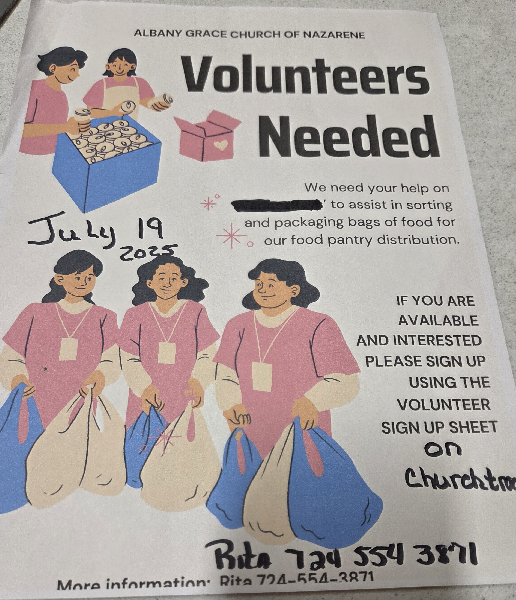 ALBANY GRACE CHURCH OF NAZARENE
Volunteers
Needed
We need your help on
' to assist in sorting
and packaging bags of food for
our food pantry distribution.
July 19
2025
IF YOU ARE
AVAILABLE
AND INTERESTED
PLEASE SIGN UP
USING THE
VOLUNTEER
SIGN UP SHEET
on
Rita 724 554 3871
More information: Rita 724-554-3871